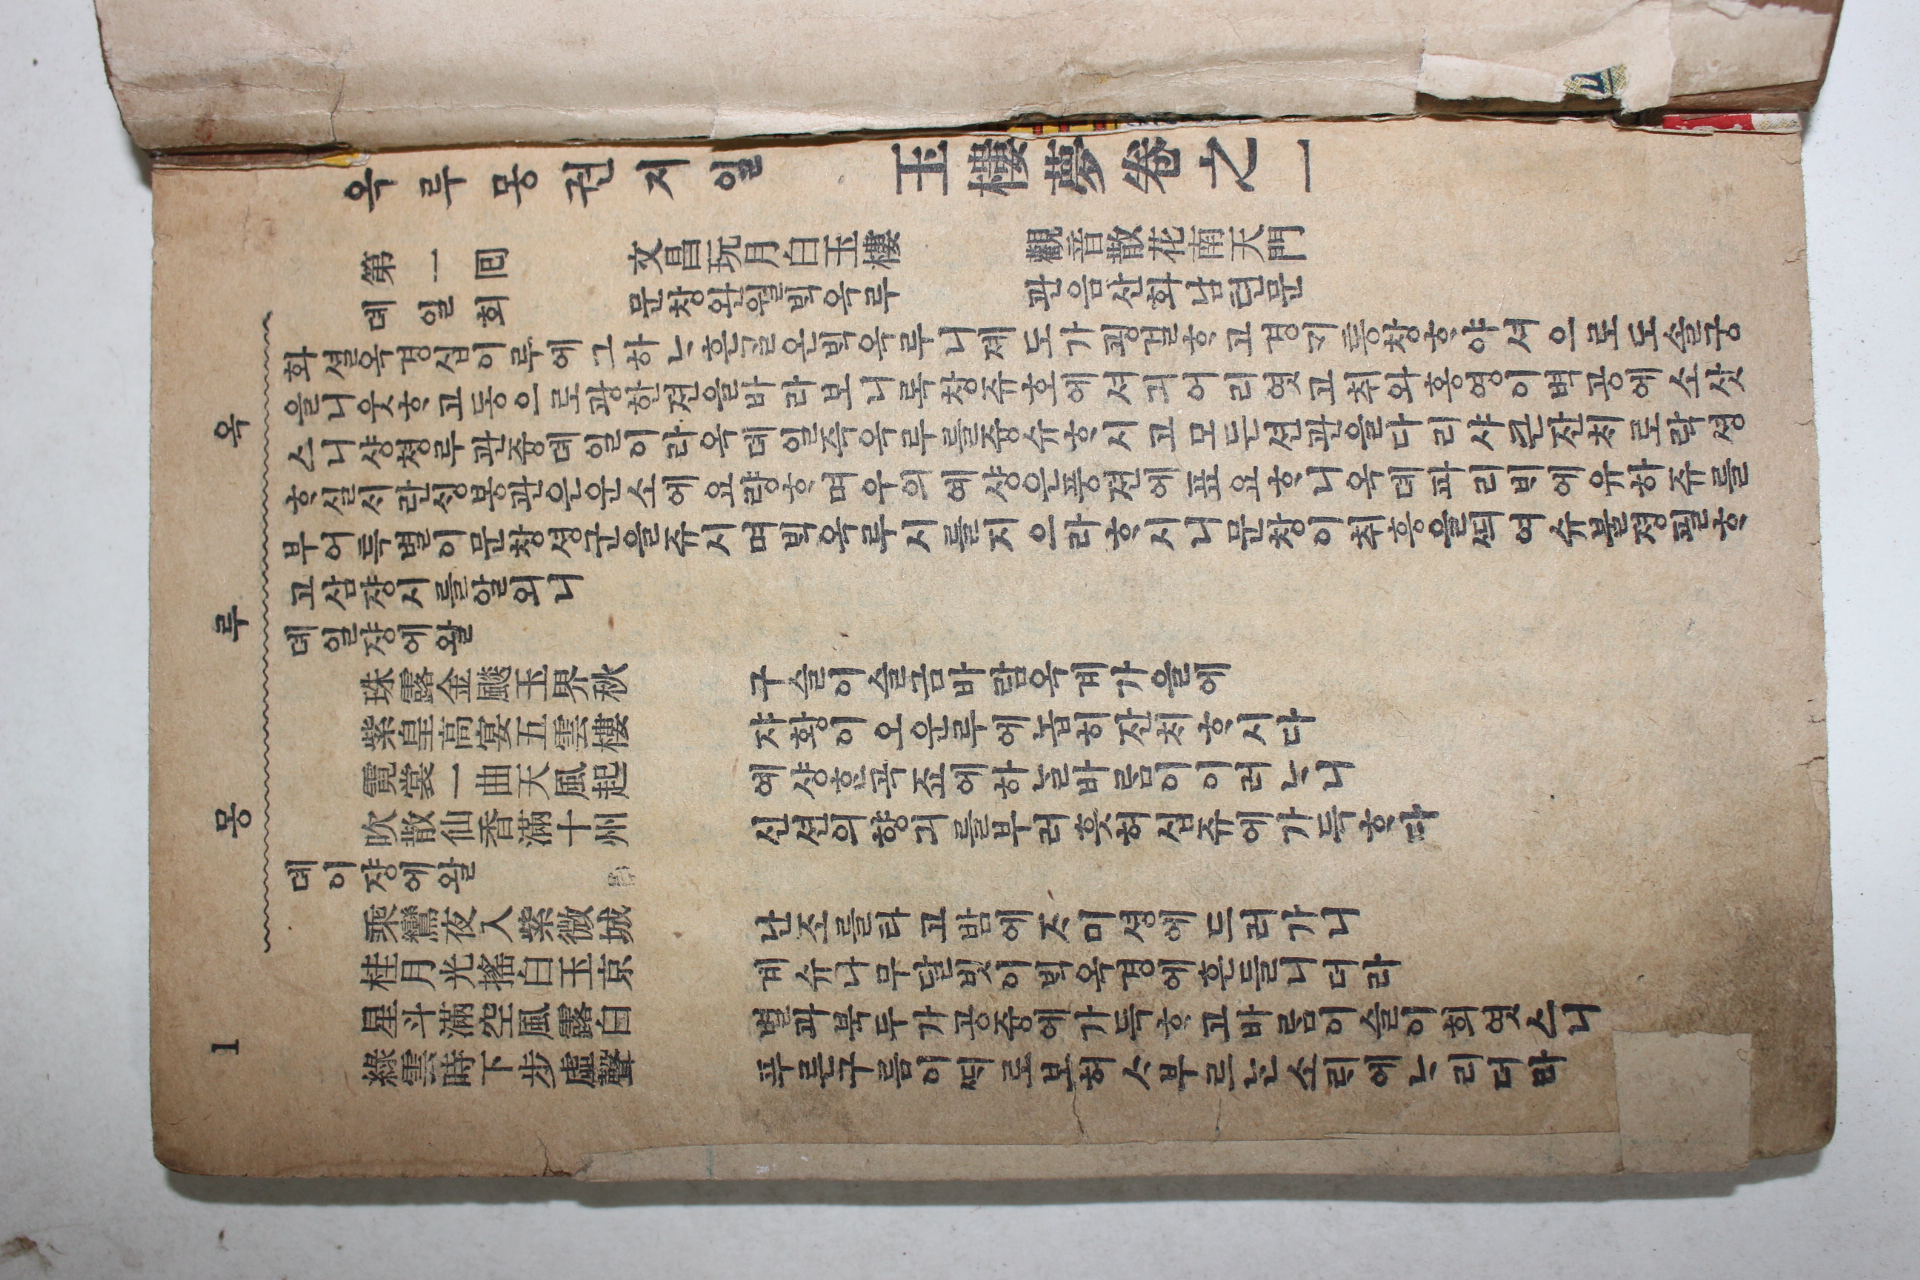 옥루몽권지일 玉樓夢卷之一
第一回 文昌玩月白玉樓 觀音散花南天門
뎨일회 문창완월빅옥루 관음산화남텬문
화셜옥경십이루에그하ᄂᆞ흔ᄀᆞᆯ온빅옥루니졔도가굉걸ᄒᆞ고경ᄀᆡ통창ᄒᆞ야셔으로도솔궁
을니웃ᄒᆞ고동으로광한젼을바라보니록창쥬호에셔긔어리엿고취와홍영이벽공에소삿
스니샹쳥루관즁뎨일이라옥뎨일즉옥루를즁슈ᄒᆞ시고모든션관을다리샤큰잔치로락셩
ᄒᆞ실시란싱봉관은운소에요량ᄒᆞ며우의예샹은풍젼에표요ᄒᆞ니옥뎨파리ᄇᆡ에유하쥬를
부어특별이문창셩군을쥬시며빅옥루시를지으라ᄒᆞ시니문창이취흥을ᄯᅴ여슈불졍필ᄒᆞ
고삼쟝시를알외니
뎨일쟝에왈
珠露金飈玉界秋 구슬이슬금바람옥계가을에
紫皇高宴五雲樓 쟈황이오운루에놉히잔치ᄒᆞ시다
霓裳一曲天風起 예샹흔곡죠에하ᄂᆞᆯ바ᄅᆞᆷ이이러ᄂᆞ니
吹散仙香滿十州 신션의향긔를부러흣허십쥬에가득ᄒᆞ다
뎨이쟝에왈
乘鸞夜入紫微城 난죠를타고밤에ᄌᆞ미셩에드러가니
桂月光搖白玉京 계슈나무달빗이빅옥경에흔들니더라
星斗滿空風露白 별과북두가공즁에가득ᄒᆞ고바ᄅᆞᆷ이슬이희엿스니
綠雲時下步虛聲 푸른구름이ᄯᅢ로보허ᄉᆞ부르ᄂᆞᆫ소ᄅᆡ에ᄂᆞ리더라
옥루몽
1